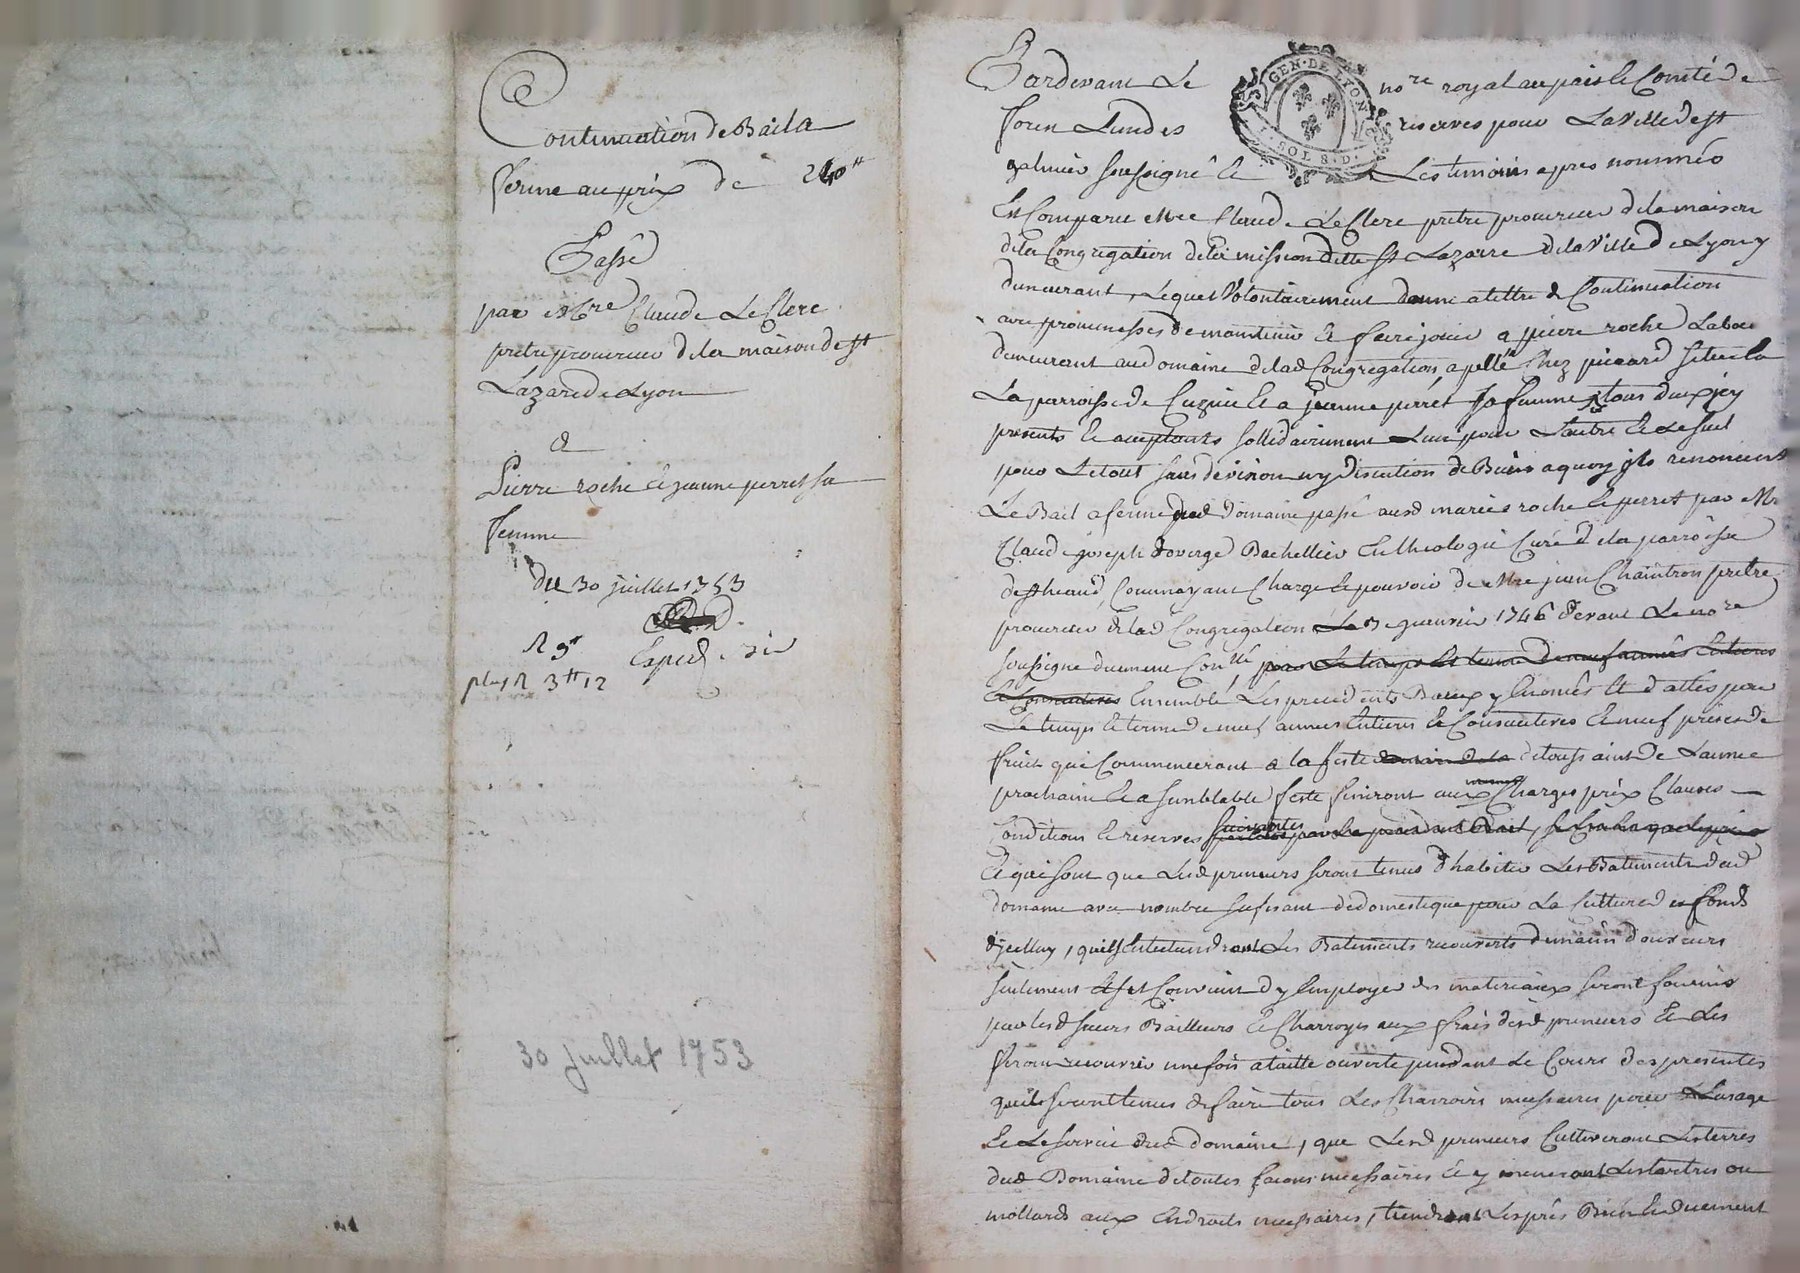 Continuation de Bail a
ferme au prix de 240#
Passé
par Mre Claude LeClerc
pretre procureur de la maison de St
Lazare de Lyon
a
Pierre roche et jeanne perret sa
femme
du 30 juillet 1753
R 9#
Exped.
plus R 3# 12
30 juillet 1753
GEN·DE LYON
SOL 8·D·
Pardevant Le nore royal au pais et Comté de
forez reserves pour La Ville de St
galmier soussigné et Les temoins apres nommés
Est Comparu Mre Claude LeClerc pretre procureur de la maison
de la Congregation de la mission dette St Lazarre de la Ville de Lyon y
demeurant, Lequel Volontairement donne a tittre de Continuation
avec promesses de maintenir et faire jouir a pierre roche Labour
demeurant au domaine de lad Congregation apellé Chez picard situé
La parroisse de Cuzieu et a jeanne perret sa femme tous deux jcy
presents et acceptants sollidairement Lun pour Lautre et Le seul
pour Le tout sans division ny discution de Biens a quoy jls renoncent
Le Bail a ferme dud domaine passé auxd mariés roche et perret par Mre
Claude joseph Bachellier En theologie Curé de la parroisse
de St heand, Comme ayant Charge et pouvoir de Mre jean Chaintron pretre
procureur de lad Congregation Le 3e janvier 1746 devant Le nore
soussigné duement Conllé, pour Le temps et terme de neuf années Entieres
et Consecutives Ensemble Les precedents Baux y Enoncés et dattés pour
Le temps et terme de neuf années Entieres et Consecutives et neuf prises de
fruit qui Commenceront a la feste de toussaint de Lannée
prochaine et a semblable feste finiront aux mesmes Charges prix Clauses
Conditions et reserves suivantes
Et qui sont que Lesd preneurs seront tenus d'habiter Les Batiments dud
domaine avec nombre sufisant de domestique pour La Culture des fonds
d'jcelluy, quils Entretiendront Les Batiments recouverts de main d'ouvriers
seulement et sil Convient d'y Employer des materiaux seront fournis
par lesd sieurs Bailleurs et Charroyés aux frais desd preneurs et Les
feront recouvrir une fois a taille ouverte pendant Le Cours des presentes
quils seront tenus de faire tous Les Charrois necessaires pour Lusage
et Le service dud domaine, que Lesd preneurs Cultiveront Les terres
dud Domaine de toutes façons necessaires et y meneront Les tertres ou
mollards aux Endroits necessaires, tiendront Les prés Bien et duement